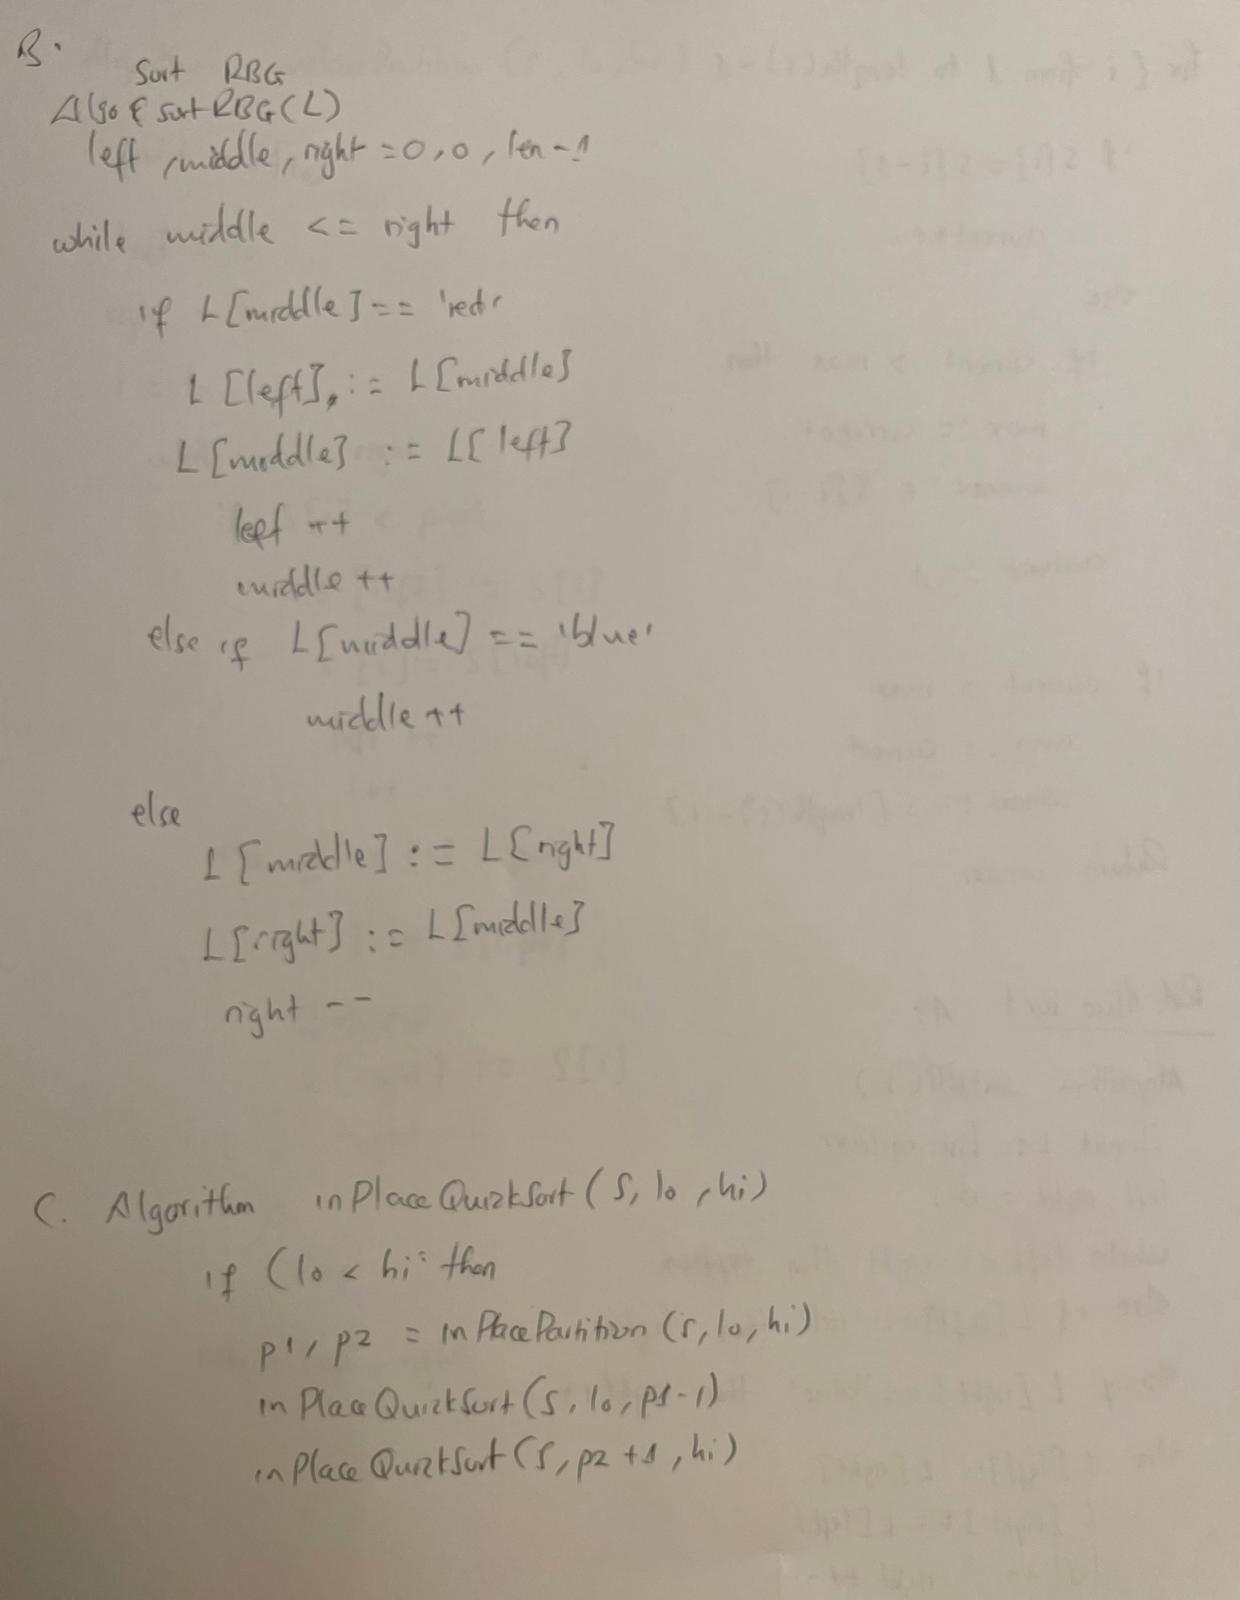 B.
Sort RBG
Algo & sortRBG(L)
left, middle, right = 0, 0, len - 1
while middle <= right then
if L[middle] == 'red'
L[left], := L[middle]
L[middle] := L[left]
left ++
middle ++
else if L[middle] == 'blue'
middle ++
else
L[middle] := L[right]
L[right] := L[middle]
right --
C. Algorithm inPlaceQuickSort(S, lo, hi)
if (lo < hi then
p1, p2 = inPlacePartition(S, lo, hi)
inPlaceQuickSort(S, lo, p1-1)
inPlaceQuickSort(S, p2 +1, hi)